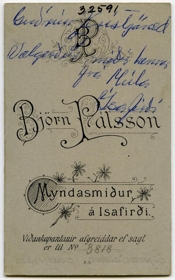 32591
Guðrún
Valgerður
frá
Björn Pálsson
Myndasmiður
á Isafirði.
Viðaukapantanir afgreiddar ef sagt
er til № 3818